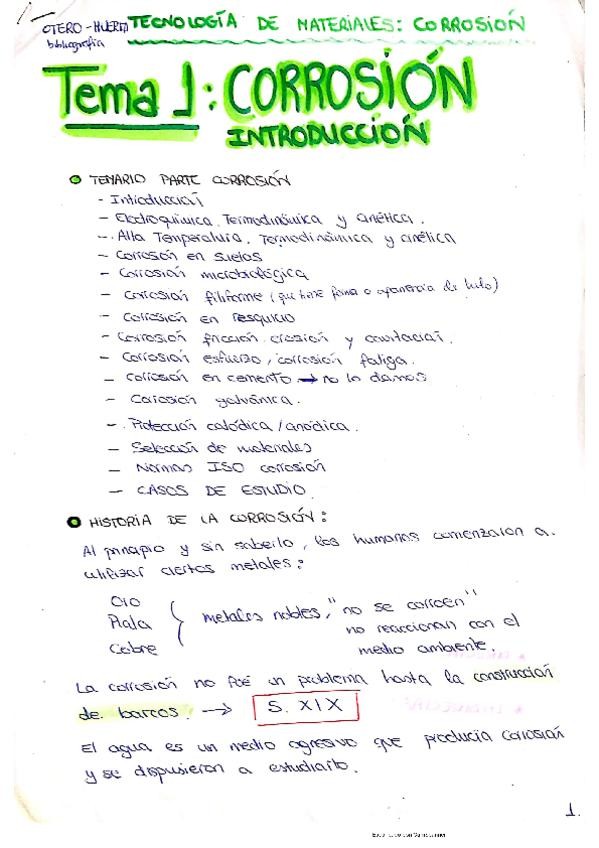 OTERO-HUERTA TECNOLOGÍA DE MATERIALES: CORROSIÓN
bibliografía
Tema 1: CORROSIÓN
INTRODUCCIÓN
TEMARIO PARTE CORROSIÓN
- Introducción
- Electroquímica. Termodinámica y cinética.
- Alta Temperatura. Termodinámica y cinética
- Corrosión en suelos
- Corrosión microbiológica
- Corrosión filiforme (que tiene forma o apariencia de hilo)
- Corrosión en resquicio
- Corrosión fricción, erosión y cavitación.
- Corrosión esfuerzo, corrosión fatiga.
- Corrosión en cemento → no lo damos
- Corrosión galvánica.
- Protección catódica / anódica.
- Selección de materiales
- Normas ISO corrosión
- CASOS DE ESTUDIO.
HISTORIA DE LA CORROSIÓN:
Al principio y sin saberlo, los humanos comenzaron a
utilizar ciertos metales:
Oro
Plata
Cobre
metales nobles, "no se corroen"
no reaccionan con el
medio ambiente.
La corrosión no fue un problema hasta la construcción
de barcos. → S. XIX
El agua es un medio agresivo que producía corrosión
y se dispusieron a estudiarlo.
1.